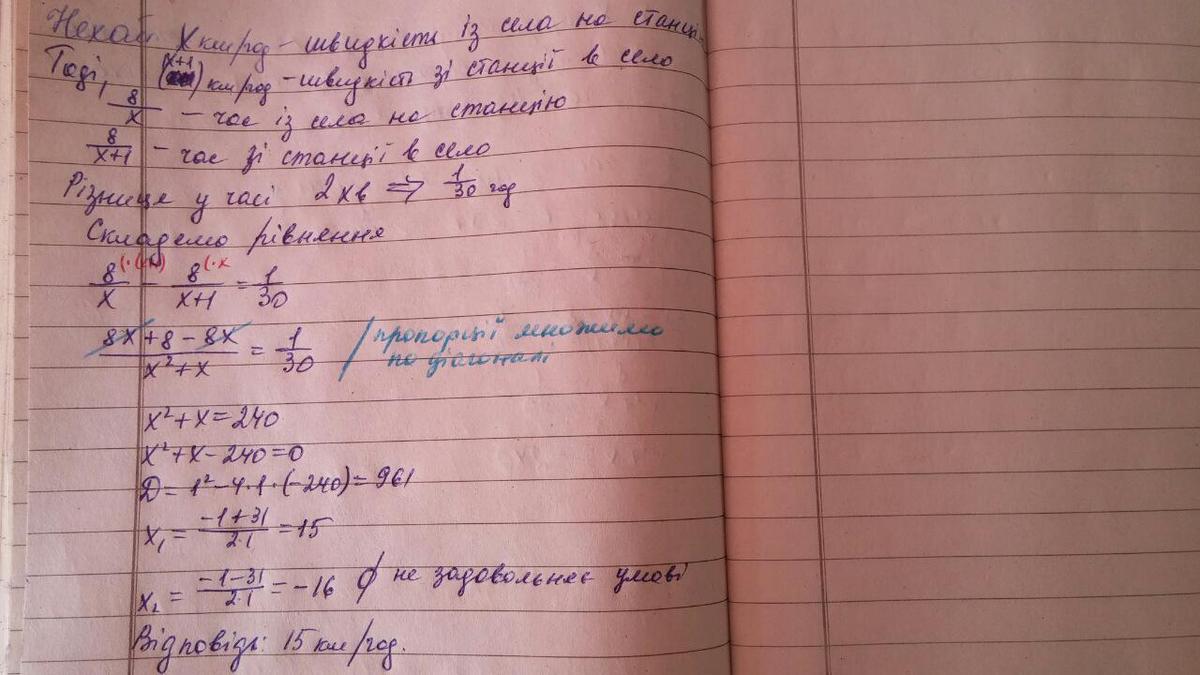 Нехай x км/год - швидкість із села на станцію
Тоді, (x+1) км/год - швидкість зі станції в село
8/x - час із села на станцію
8/(x+1) - час зі станції в село
Різниця у часі 2хв => 1/30 год
Складемо рівняння
8/x (·(x+1) - 8/(x+1) (·x = 1/30
(8x+8-8x)/(x²+x) = 1/30 / пропорції множимо
по діагоналі
x²+x=240
x²+x-240=0
D=1²-4·1·(-240)=961
x₁ = (-1+31)/(2·1) = 15
x₂ = (-1-31)/(2·1) = -16 ∅ не задовольняє умові
Відповідь: 15 км/год.